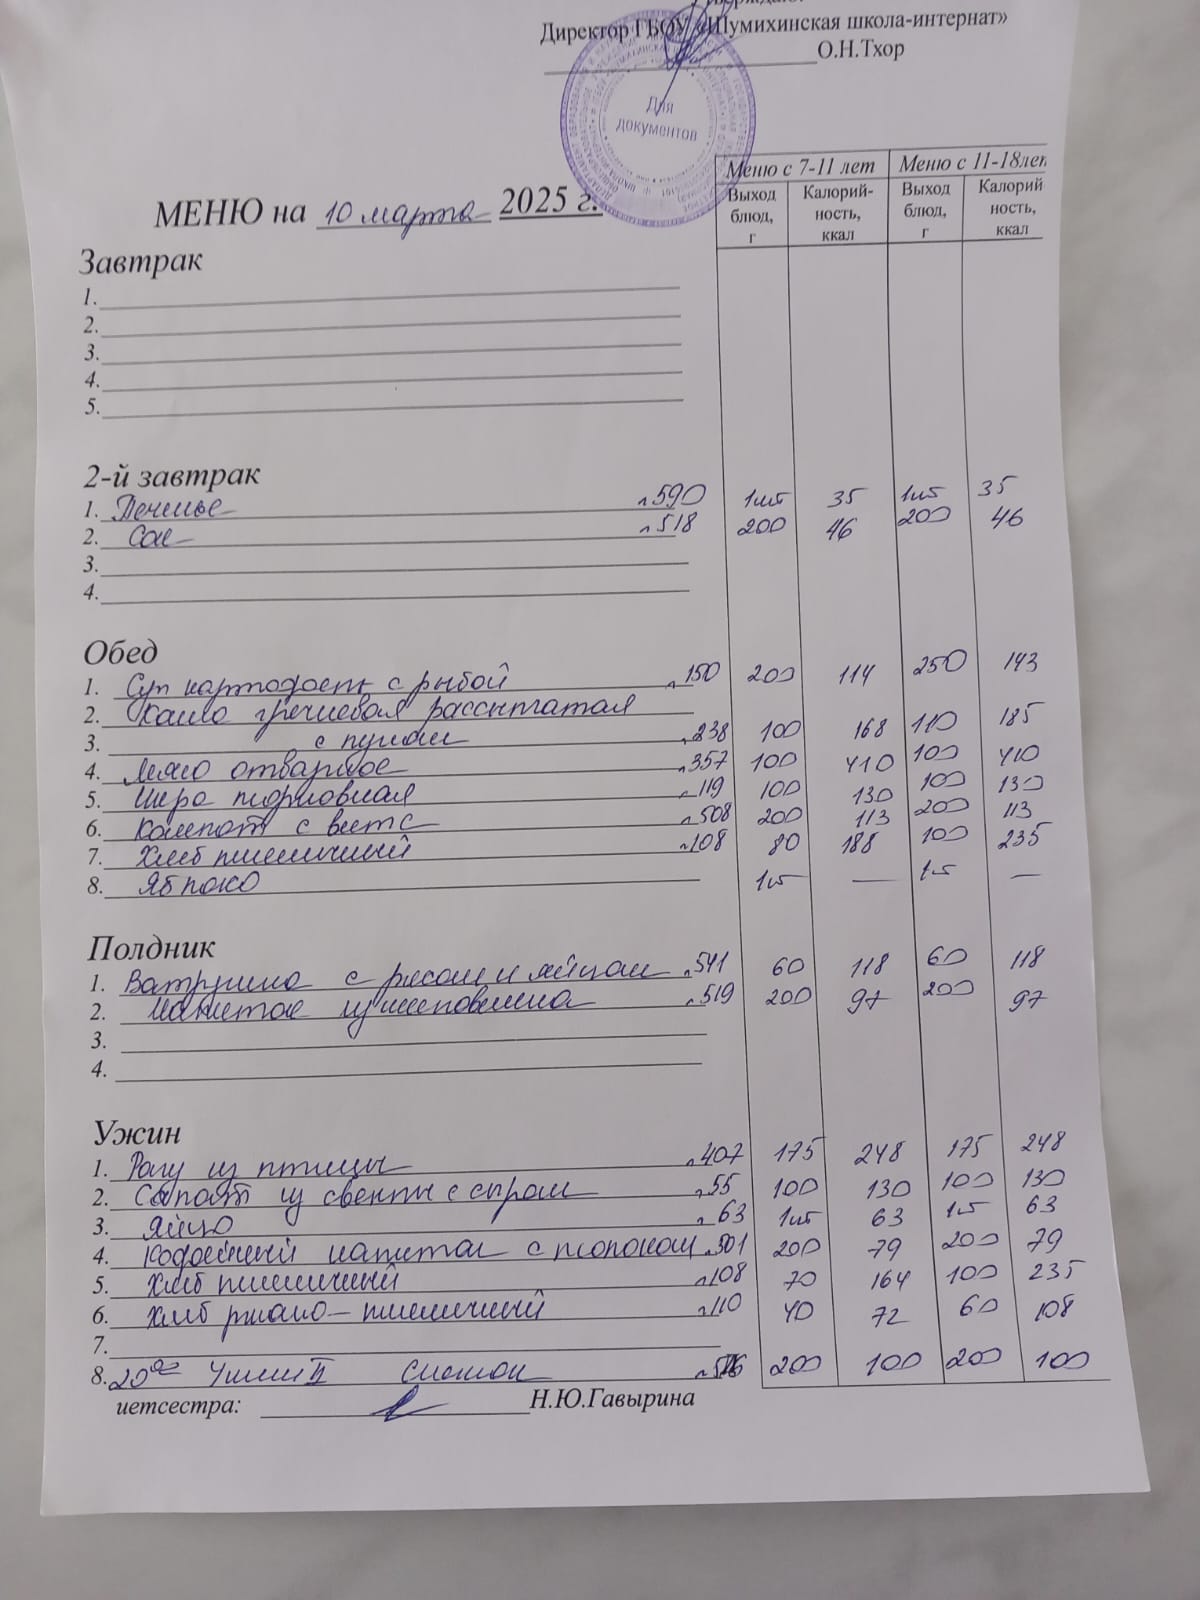 Директор ГБОУ «Шумихинская школа-интернат»
О.Н.Тхор
Для
документов
МЕНЮ на 10 марта 2025 г.
Меню с 7-11 лет Меню с 11-18лет
Выход блюд, г Калорий-ность, ккал Выход блюд, г Калорий ность, ккал
Завтрак
1.
2.
3.
4.
5.
2-й завтрак
1. Печенье л590 1шт 35 1шт 35
2. Сок л518 200 46 200 46
3.
4.
Обед
1. Суп картофельн с рыбой л150 200 114 250 143
2. Каша гречневая рассыпчатая
3. л238 100 168 110 185
4. Мясо отварное л357 100 410 100 410
5. Икра морковная л119 100 130 100 130
6. Компот с вит С л508 200 113 200 113
7. Хлеб пшеничный л108 80 188 100 235
8. Яблоко 1шт — 1шт —
Полдник
1. Ватрушка с рисом и яйцом л541 60 118 60 118
2. Напиток из шиповника л519 200 97 200 97
3.
4.
Ужин
1. Рагу из птицы л407 175 248 175 248
2. Салат из свеклы с сыром л55 100 130 100 130
3. Яйцо л63 1шт 63 1шт 63
4. Кофейный напиток с молоком л501 200 79 200 79
5. Хлеб пшеничный л108 70 164 100 235
6. Хлеб ржано-пшеничный л110 40 72 60 108
7.
8. 20⁰⁰ Ужин II 200 100 200 100
иетсестра: Н.Ю.Гавырина